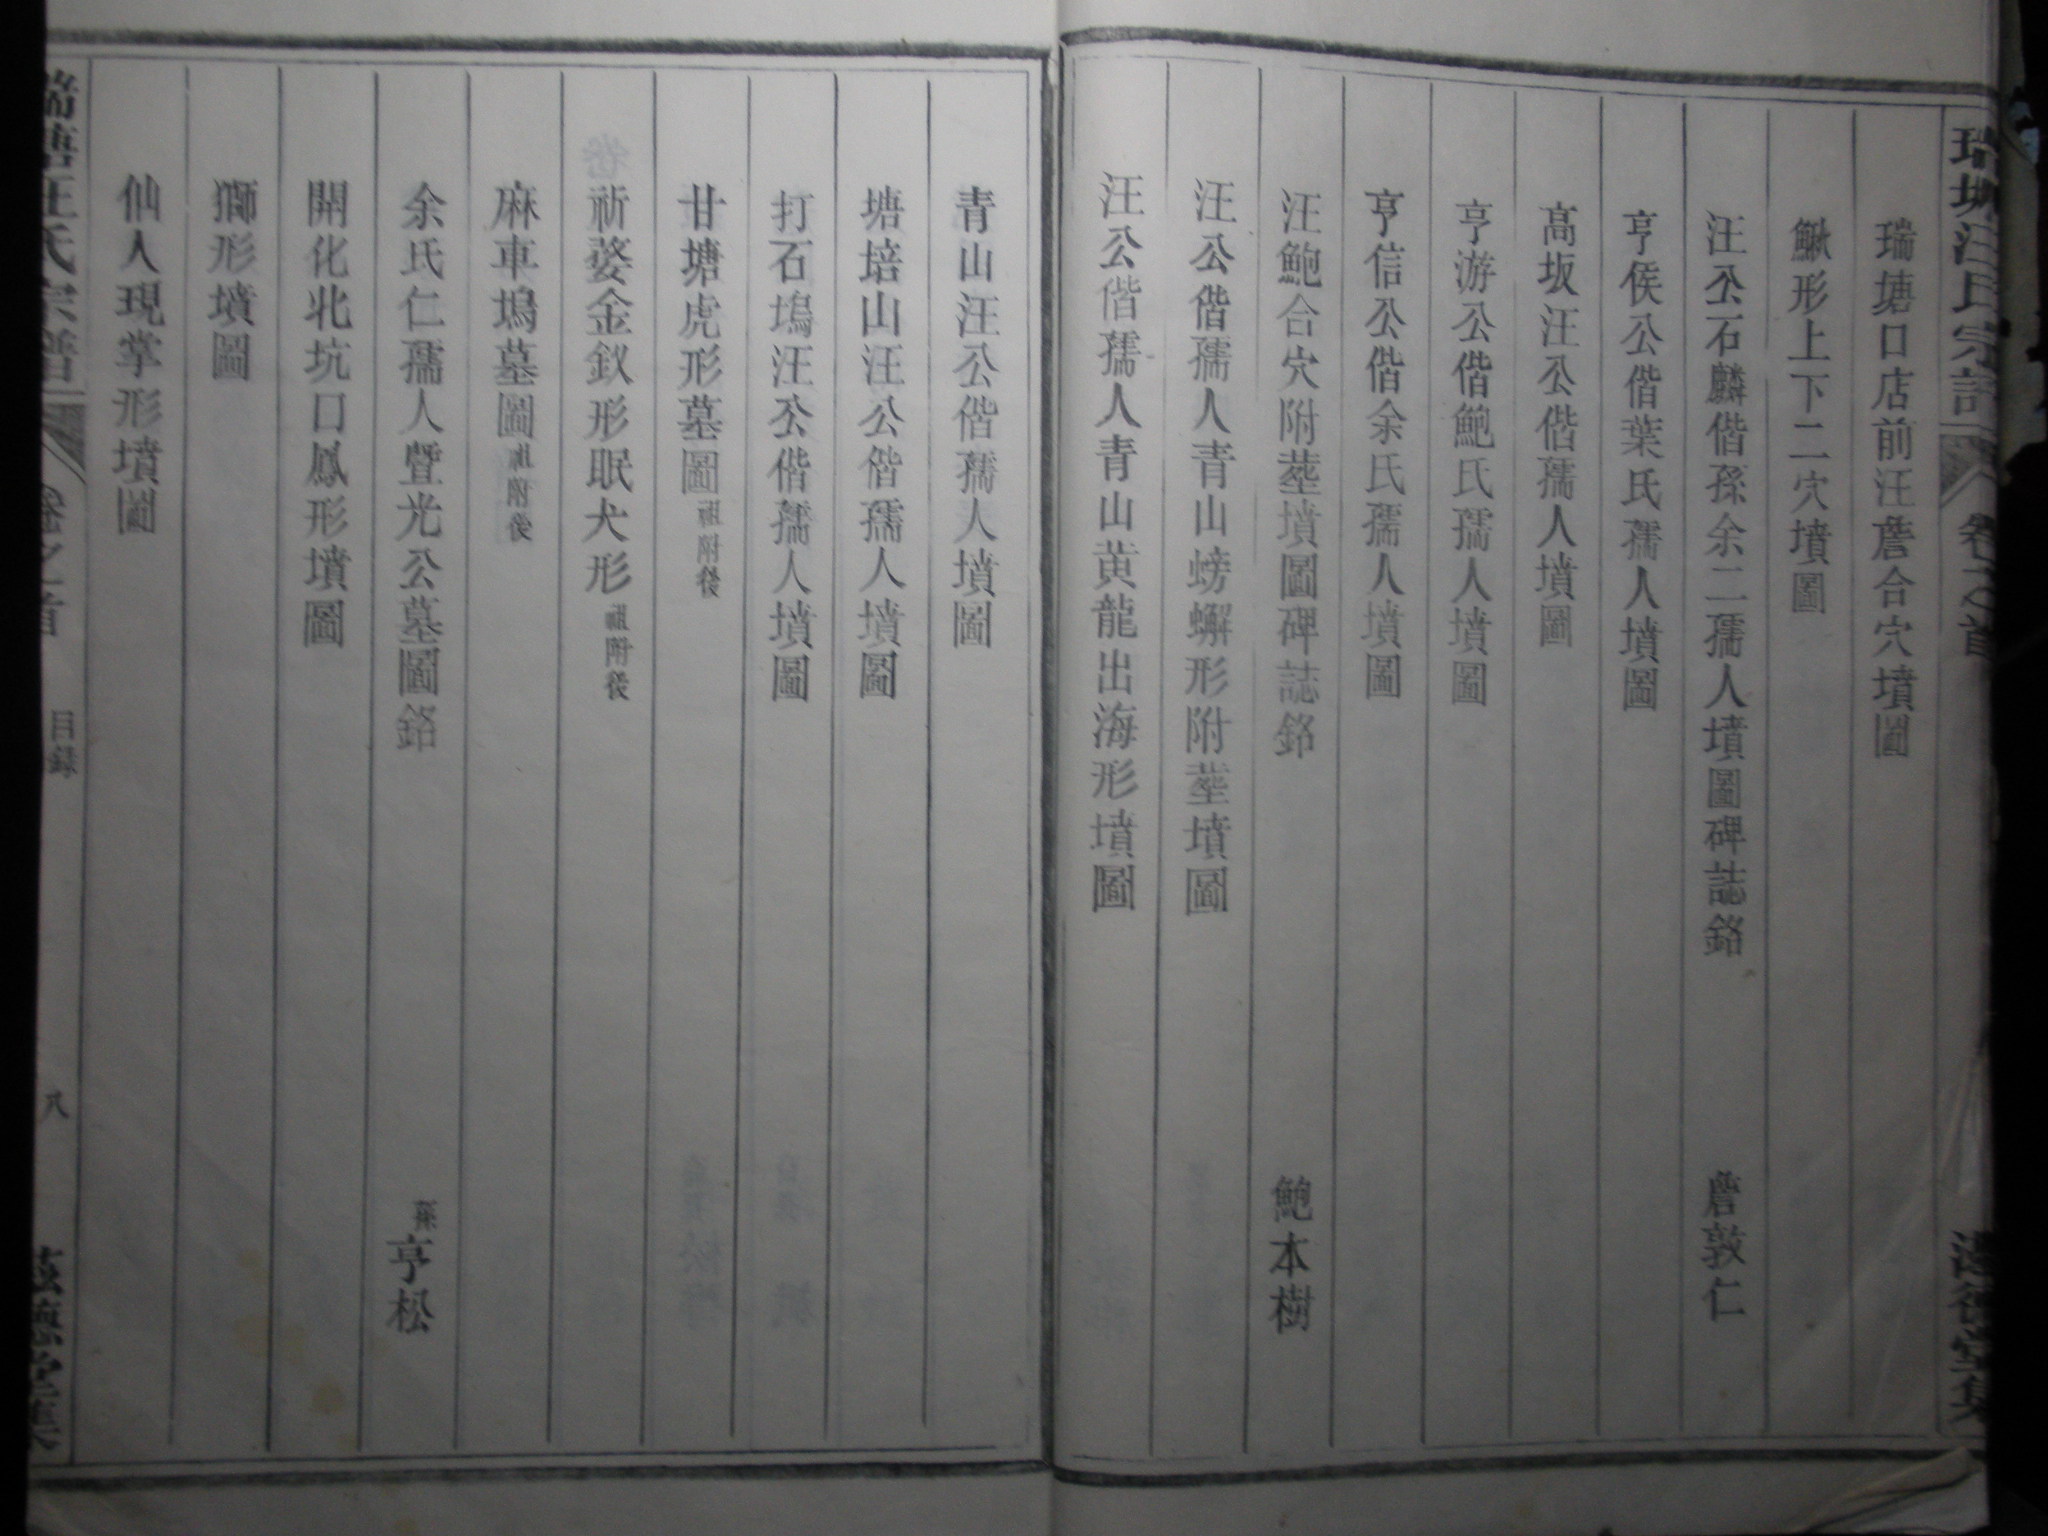 瑞塘汪氏宗譜
卷之首
瑞塘口店前汪詹合穴墳圖
鰍形上下二穴墳圖
汪公石麟偕孫余二孺人墳圖碑誌銘 詹敦仁
亨俟公偕葉氏孺人墳圖
高坂汪公偕孺人墳圖
亨游公偕鮑氏孺人墳圖
亨信公偕余氏孺人墳圖
汪鮑合穴附塟墳圖碑誌銘 鮑本樹
汪公偕孺人青山螃蠏形附塟墳圖
汪公偕孺人青山黄龍出海形墳圖
青山汪公偕孺人墳圖
塘培山汪公偕孺人墳圖
打石塢汪公偕孺人墳圖
甘塘虎形墓圖祖附後
祈婺金釵形眠犬形祖附後
麻車塢墓圖祖附後
余氏仁孺人暨光公墓圖銘 亨松
開化北坑口鳳形墳圖
獅形墳圖
仙人現掌形墳圖
瑞塘汪氏宗譜
卷之首
目録
八
德堂集